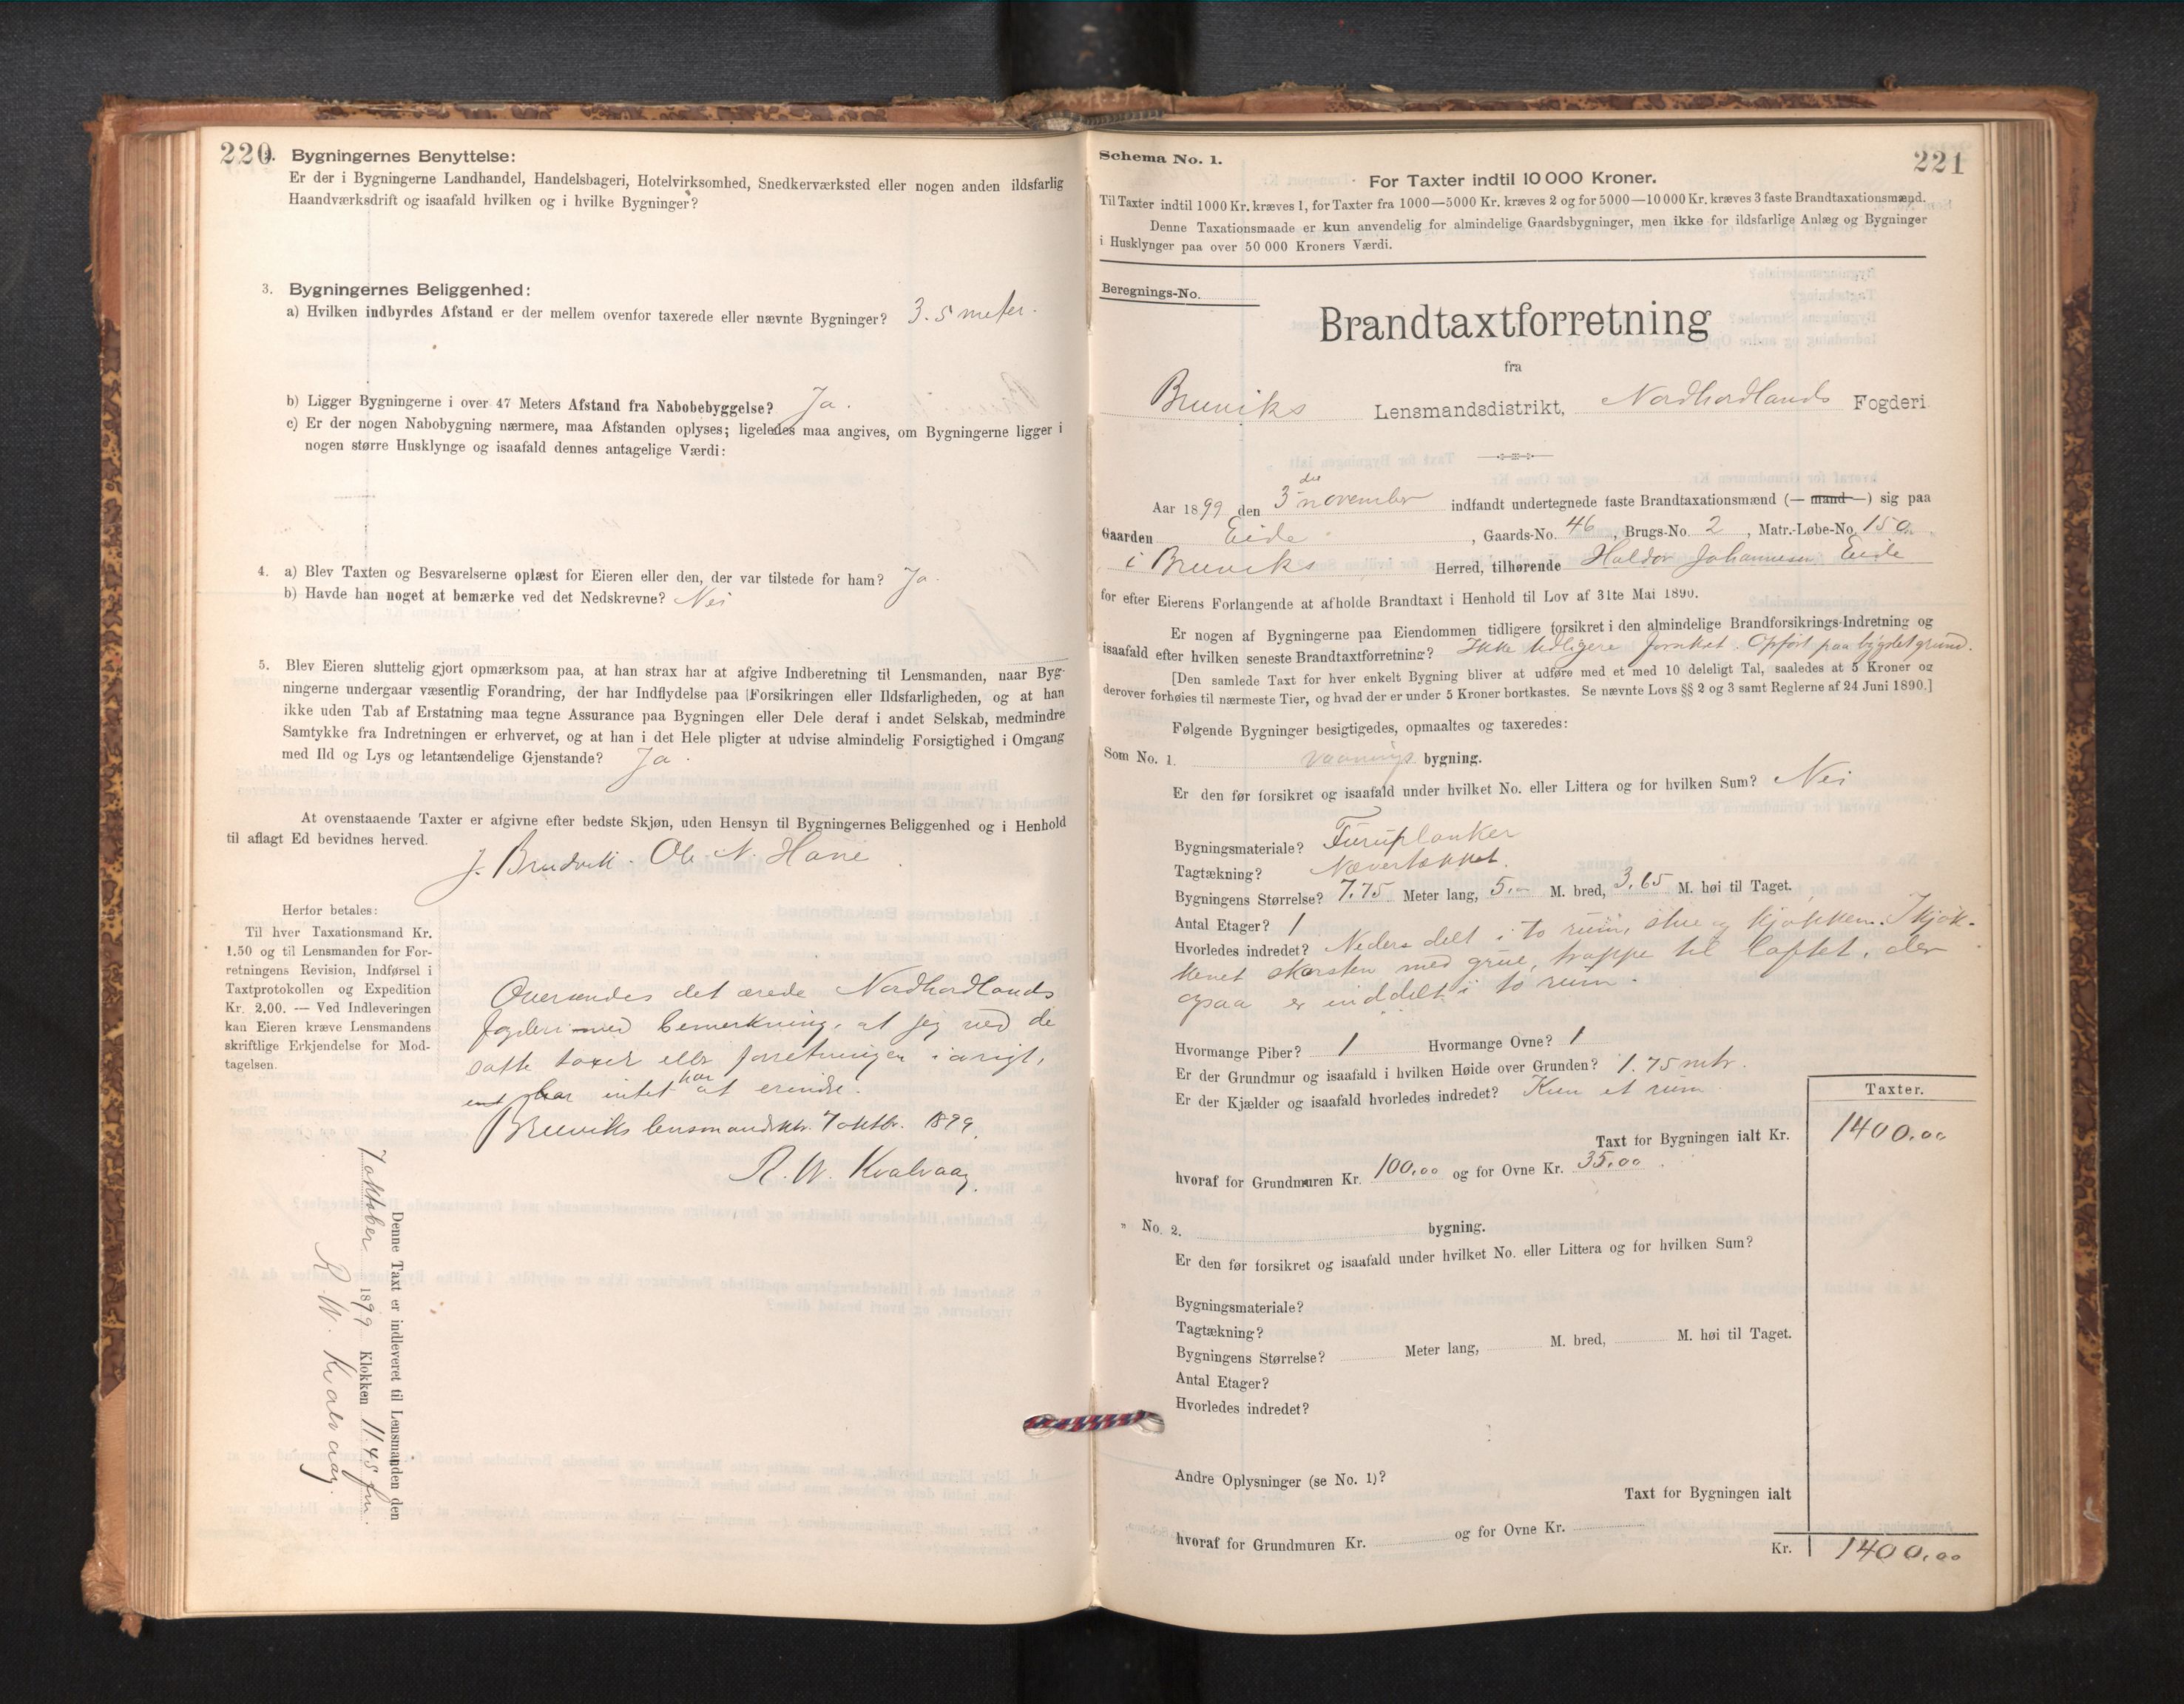 220
2. Bygningernes Benyttelse:
Er der i Bygningerne Landhandel, Handelsbageri, Hotelvirksomhed, Snedkerværksted eller nogen anden ildsfarlig
Haandværksdrift og isaafald hvilken og i hvilke Bygninger?
3. Bygningernes Beliggenhed:
a) Hvilken indbyrdes Afstand er der mellem ovenfor taxerede eller nævnte Bygninger? 3.5 meter.
b) Ligger Bygningerne i over 47 Meters Afstand fra Nabobebyggelse? Ja.
c) Er der nogen Nabobygning nærmere, maa Afstanden oplyses; ligeledes maa angives, om Bygningerne ligger i
nogen større Husklynge og isaafald dennes antagelige Værdi:
4. a) Blev Taxten og Besvarelserne oplæst for Eieren eller den, der var tilstede for ham? Ja.
b) Havde han noget at bemærke ved det Nedskrevne? Nei
5. Blev Eieren sluttelig gjort opmærksom paa, at han strax har at afgive Indberetning til Lensmanden, naar Byg-
ningerne undergaar væsentlig Forandring, der har Indflydelse paa Forsikringen eller Ildsfarligheden, og at han
ikke uden Tab af Erstatning maa tegne Assurance paa Bygningen eller Dele deraf i andet Selskab, medmindre
Samtykke fra Indretningen er erhvervet, og at han i det Hele pligter at udvise almindelig Forsigtighed i Omgang
med Ild og Lys og letantændelige Gjenstande? Ja.
At ovenstaaende Taxter er afgivne efter bedste Skjøn, uden Hensyn til Bygningernes Beliggenhed og i Henhold
til aflagt Ed bevidnes herved.
J. Brudvik. Ole N. Hane.
Herfor betales:
Til hver Taxationsmand Kr.
1.50 og til Lensmanden for For-
retningens Revision, Indførsel i
Taxtprotokollen og Expedition
Kr. 2.00. — Ved Indleveringen
kan Eieren kræve Lensmandens
skriftlige Erkjendelse for Mod-
tagelsen.
Oversendes det ærede Nordhordlands
fogderi med bemerkning, at jeg ved de
satte taxer eller forretningen iøvrigt,
har intet at erindre.
Bruviks lensmandsktr. 7 oktbr. 1899.
R. W. Kvalvaag.
Denne Taxt er indleveret til Lensmanden den
7 oktober 1899 Klokken 11.45 fm.
R. W. Kvalvaag.
Schema No. 1.
221
For Taxter indtil 10 000 Kroner.
Til Taxter indtil 1000 Kr. kræves 1, for Taxter fra 1000—5000 Kr. kræves 2 og for 5000—10 000 Kr. kræves 3 faste Brandtaxationsmænd.
Denne Taxationsmaade er kun anvendelig for almindelige Gaardsbygninger, men ikke for ildsfarlige Anlæg og Bygninger
i Husklynger paa over 50 000 Kroners Værdi.
Beregnings-No.
Brandtaxtforretning
fra
Bruviks Lensmandsdistrikt, Nordhordlands Fogderi
Aar 1899 den 3die november indfandt undertegnede faste Brandtaxationsmænd (— mand —) sig paa
Gaarden Eide, Gaards-No. 46, Brugs-No. 2, Matr.-Løbe-No. 150a.
i Bruviks Herred, tilhørende Haldor Johannesen Eide
for efter Eierens Forlangende at afholde Brandtaxt i Henhold til Lov af 31te Mai 1890.
Er nogen af Bygningerne paa Eiendommen tidligere forsikret i den almindelige Brandforsikrings-Indretning og
isaafald efter hvilken seneste Brandtaxtforretning? Ikke tidligere forsikret. Opført paa bygslet grund.
[Den samlede Taxt for hver enkelt Bygning bliver at udføre med et med 10 deleligt Tal, saaledes at 5 Kroner og
derover forhøies til nærmeste Tier, og hvad der er under 5 Kroner bortkastes. Se nævnte Lovs §§ 2 og 3 samt Reglerne af 24 Juni 1890.]
Følgende Bygninger besigtigedes, opmaaltes og taxeredes:
Som No. 1. vaanings bygning.
Er den før forsikret og isaafald under hvilket No. eller Littera og for hvilken Sum? Nei
Bygningsmateriale? Furuplanker
Tagtækning? Nævertækket.
Bygningens Størrelse? 7.75 Meter lang, 5.00 M. bred, 3.65 M. høi til Taget.
Antal Etager? 1
Hvorledes indredet? Neders delt i to rum, stue og kjøkken. I kjøk-
kenet skorsten med grue, trappe til loftet, der
ogsaa er inddelt i to rum.
Hvormange Piber? 1 Hvormange Ovne? 1
Er der Grundmur og isaafald i hvilken Høide over Grunden? 1.75 mtr.
Er der Kjælder og isaafald hvorledes indredet? Kun et rum
Taxter.
Taxt for Bygningen ialt Kr. 1400.00
hvoraf for Grundmuren Kr. 100.00 og for Ovne Kr. 35.00.
" No. 2. bygning.
Er den før forsikret og isaafald under hvilket No. eller Littera og for hvilken Sum?
Bygningsmateriale?
Tagtækning?
Bygningens Størrelse? Meter lang, M. bred, M. høi til Taget.
Antal Etager?
Hvorledes indredet?
Andre Oplysninger (se No. 1)?
Taxt for Bygningen ialt
hvoraf for Grundmuren Kr. og for Ovne Kr.
Kr. 1400.00